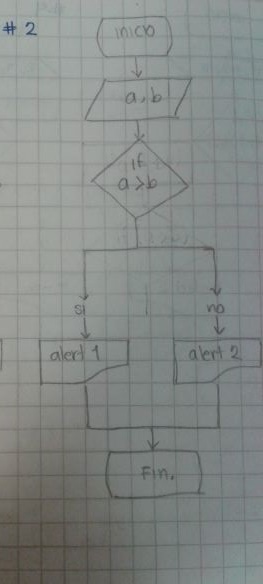 # 2
inicio
a, b
if
a > b
si
no
alert 1
alert 2
Fin.